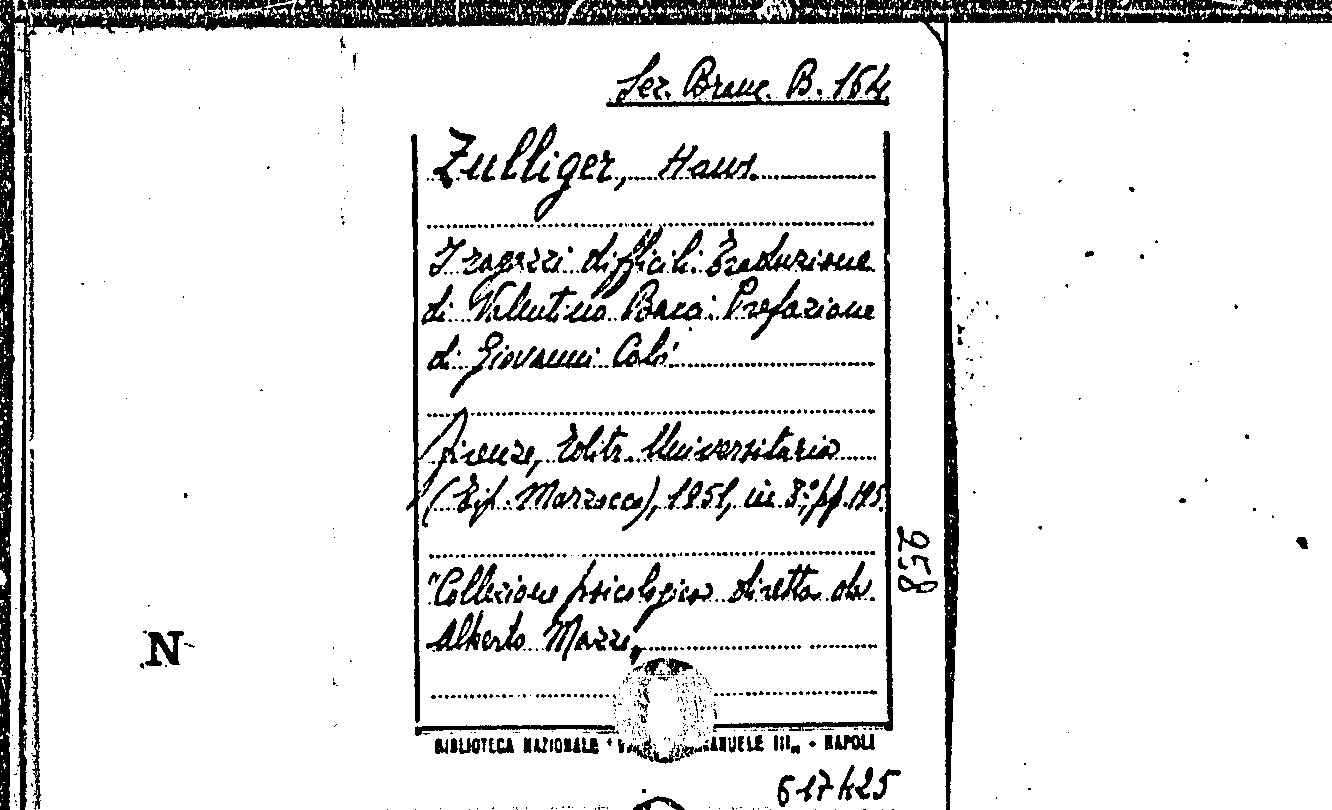 Sez. Branc. B. 164
Zulliger, Hans.
I ragazzi difficili. Traduzione
di Valentino Baca. Prefazione
di Giovanni Calò
Firenze, Editr. Universitaria
(Tip. Marzocco), 1951, in 8°, pp. 195.
"Collezione psicologica diretta da
Alberto Marzi„
958
N
BIBLIOTECA NAZIONALE " EMANUELE III„ - NAPOLI
617425